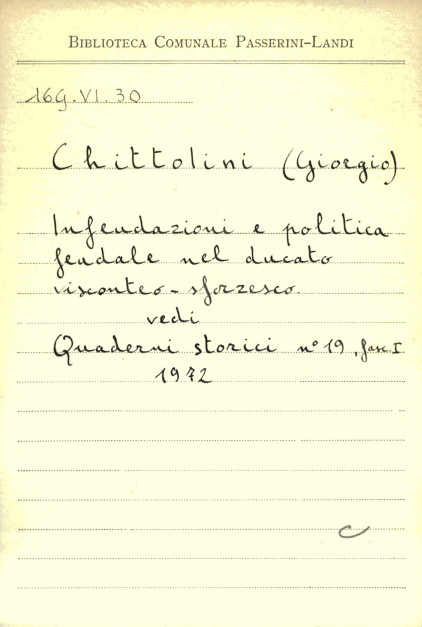 BIBLIOTECA COMUNALE PASSERINI-LANDI
16G.VI.30
Chittolini (Giorgio)
Infeudazioni e politica
feudale nel ducato
visconteo-sforzesco.
vedi
Quaderni storici n° 19, fasc. I
1972
C